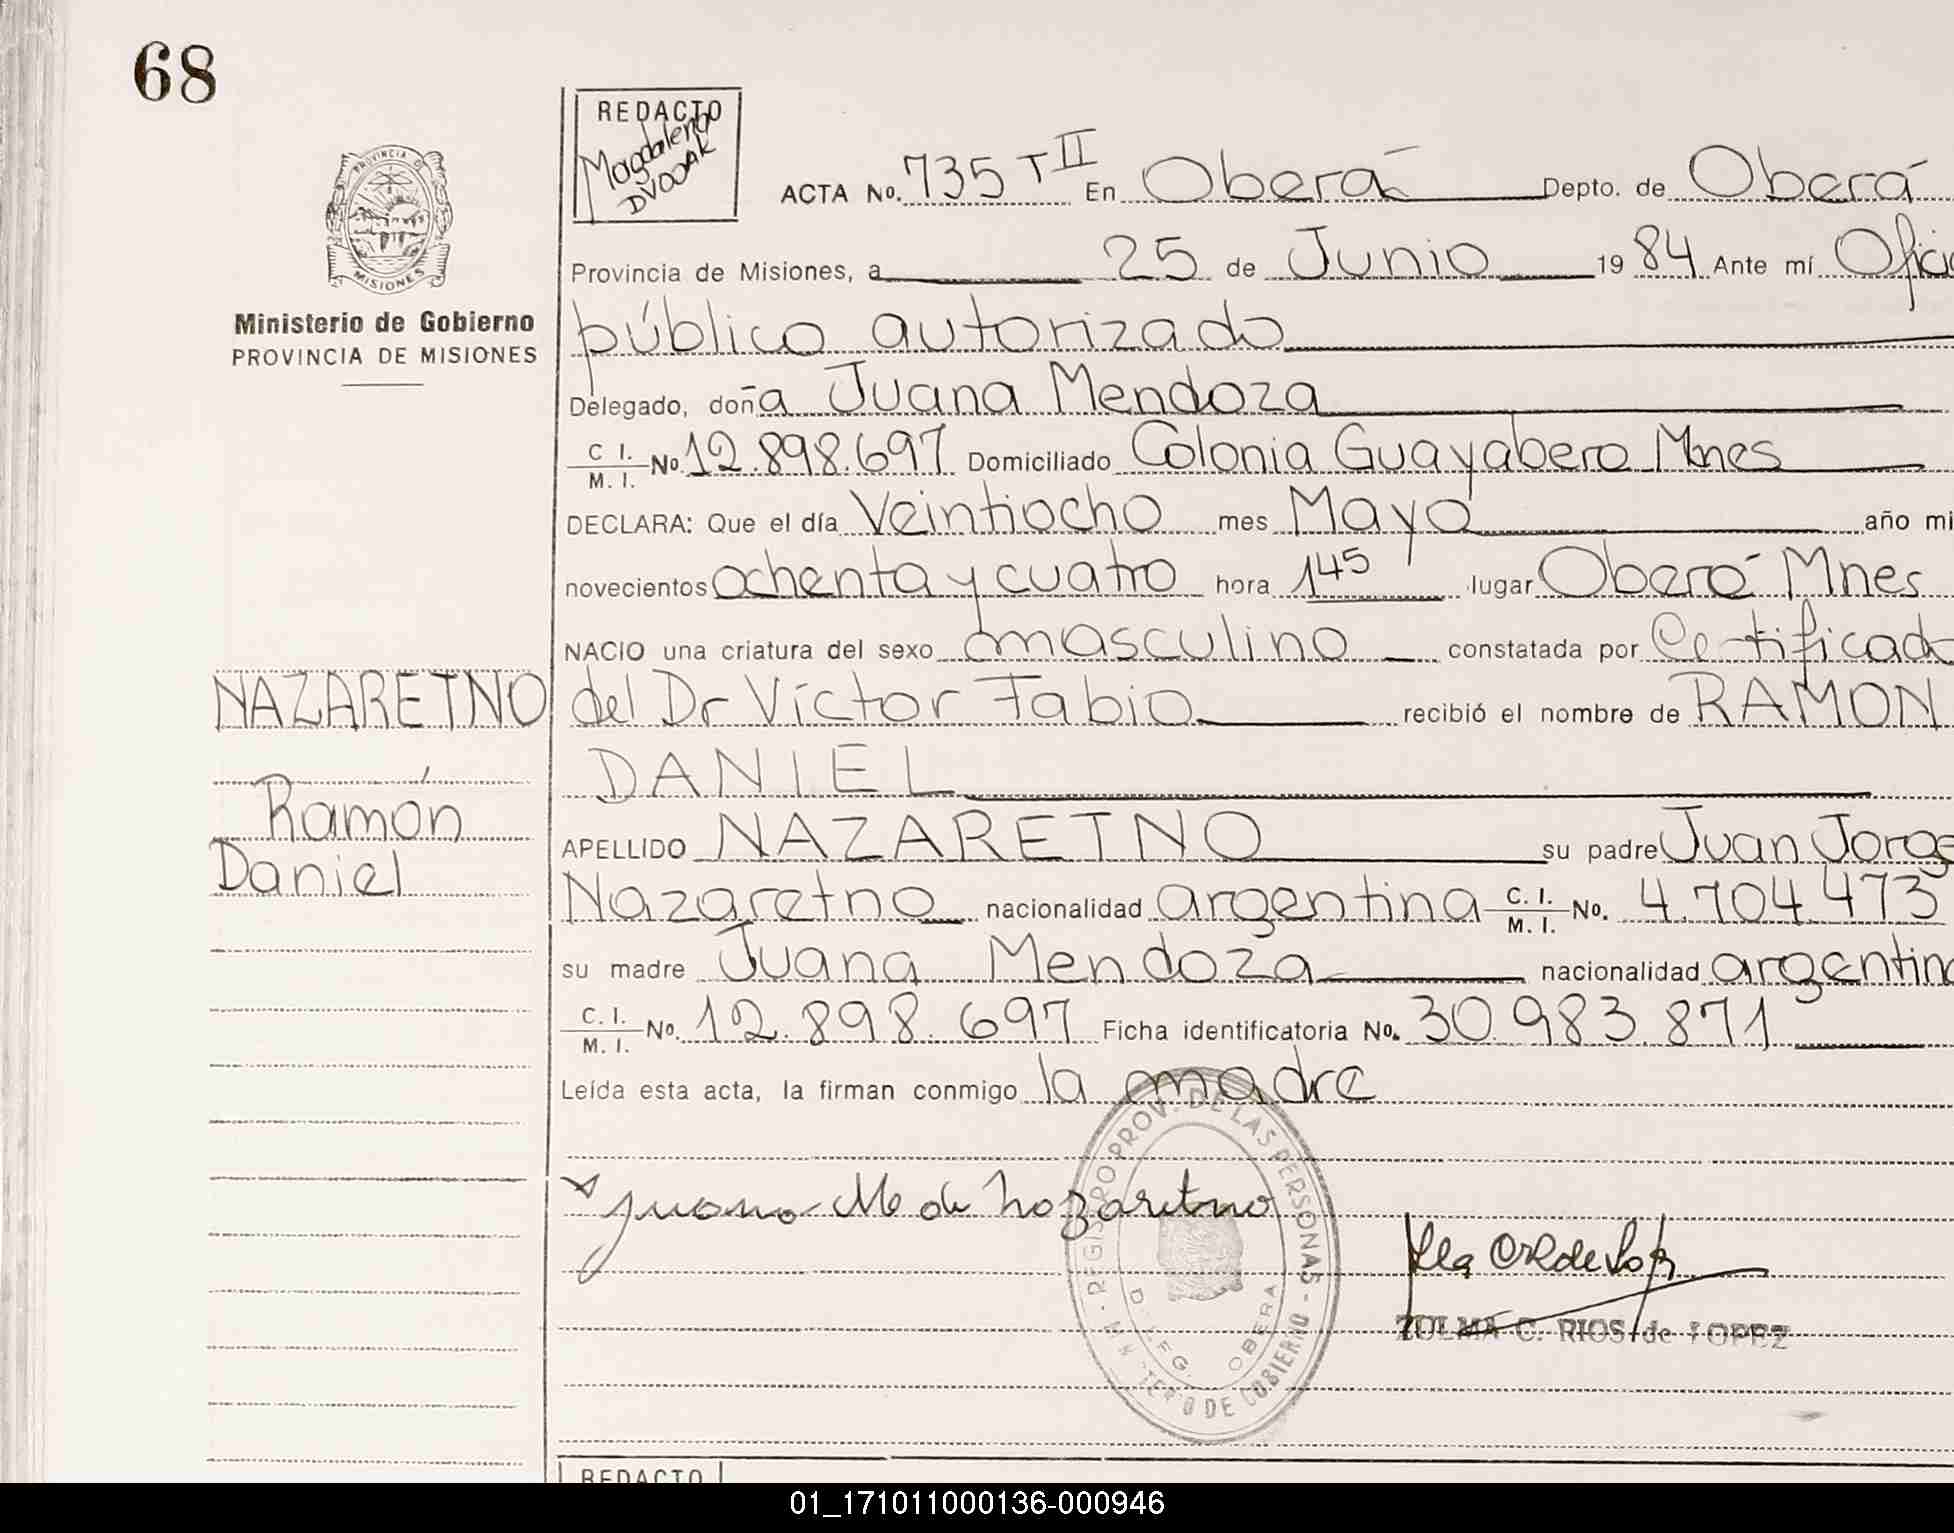 68
REDACTO
Magdalena
DVODAK
PROVINCIA DE
MISIONES
Ministerio de Gobierno
PROVINCIA DE MISIONES
ACTA No. 735 T II En Oberá Depto. de Oberá
Provincia de Misiones, a 25 de Junio 1984 Ante mí Oficia
público autorizado
Delegado, doña Juana Mendoza
C I. / M. I. No. 12.898.697 Domiciliado Colonia Guayabero Mnes
DECLARA: Que el día Veintiocho mes Mayo año mi
novecientos ochenta y cuatro hora 1 45 lugar Oberá Mnes
NACIO una criatura del sexo masculino constatada por Certificado
NAZARETNO
del Dr Víctor Fabio recibió el nombre de RAMON
DANIEL
Ramón
Daniel
APELLIDO NAZARETNO su padre Juan Jorge
Nazaretno nacionalidad argentina C. I. / M. I. No. 4.704.473
su madre Juana Mendoza nacionalidad argentina
C. I. / M. I. No. 12.898.697 Ficha identificatoria No. 30.983.871
Leída esta acta, la firman conmigo la madre
Juana M de Nazaretno
REGISTRO PROV. DE LAS PERSONAS - MINISTERIO DE GOBIERNO
DELEG. OBERA
ZULMA C. RIOS de LOPEZ
REDACTO
01_171011000136-000946